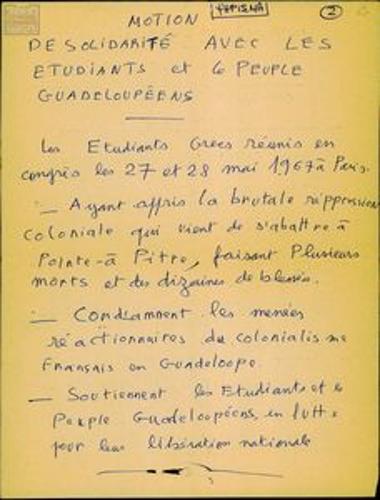 ΚΕΙΜΕΝΑ
2
MOTION
DE SOLIDARITÉ AVEC LES
ETUDIANTS et le PEUPLE
GUADELOUPÉENS
Les Etudiants Grecs réunis en
congrès les 27 et 28 mai 1967 à Paris.
— Ayant appris la brutale répression
coloniale qui vient de s'abattre à
Pointe-à Pitre, faisant Plusieurs
morts et des dizaines de blessés.
— Condamnent les menées
réactionnaires du colonialisme
Français en Guadeloupe
— Soutiennent les Etudiants et le
Peuple Guadeloupéens, en lutte
pour leur libération nationale